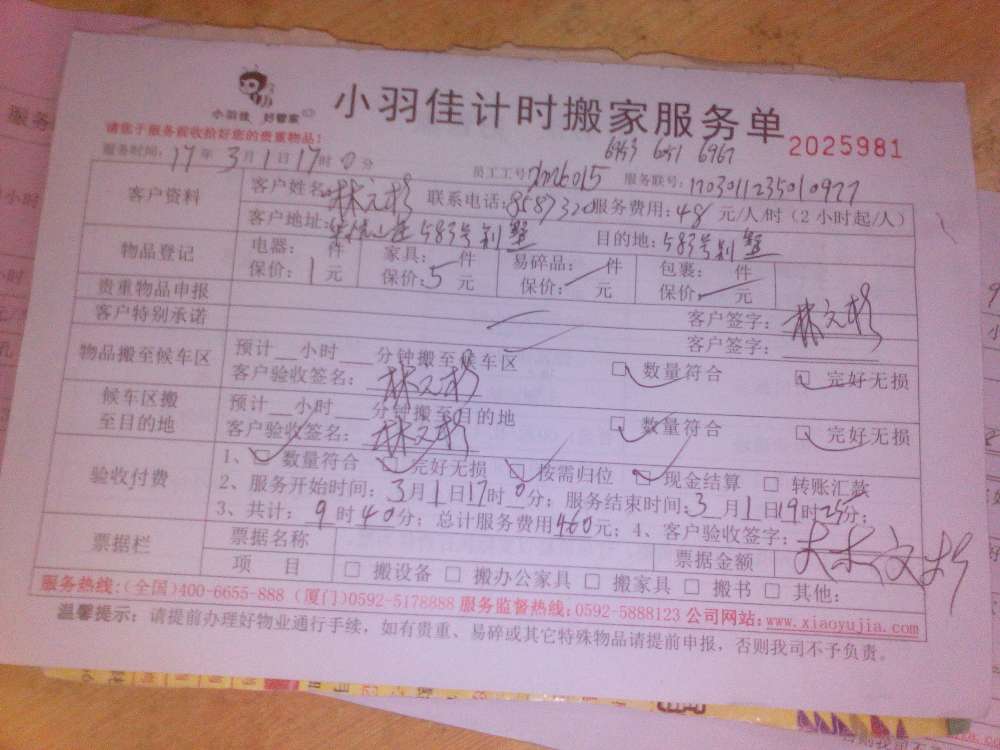 小羽佳 好管家
小羽佳计时搬家服务单
2025981
请您于服务前收拾好您的贵重物品!
6953 6941 6967
服务时间: 17年3月1日17时0分 员工工号 服务联号: 1703011235010977
客户资料 客户姓名: 林文杉 联系电话: 8587320 服务费用: 48元/人/时(2小时起/人)
客户地址: 583号别墅 目的地: 583号别墅
物品登记 电器: 件 家具: 件 易碎品: 件 包裹: 件
保价: 1元 保价: 5元 保价: 元 保价: 元
贵重物品申报 客户签字: 林文杉
客户特别承诺 客户签字:
物品搬至候车区 预计__小时__分钟搬至候车区 □ 数量符合 □ 完好无损
客户验收签名: 林文杉
候车区搬至目的地 预计__小时__分钟搬至目的地 □ 数量符合 □ 完好无损
客户验收签名: 林文杉
验收付费 1、□ 数量符合 □ 完好无损 □ 按需归位 □ 现金结算 □ 转账汇款
2、服务开始时间: 3月1日17时0分; 服务结束时间: 3月1日19时25分;
3、共计: 9时40分; 总计服务费用460元; 4、客户验收签字: 林文杉
票据栏 票据名称 票据金额
项 目 □ 搬设备 □ 搬办公家具 □ 搬家具 □ 搬书 □ 其他:
服务热线:(全国)400-6655-888 (厦门)0592-5178888 服务监督热线:0592-5888123 公司网站:www.xiaoyujia.com
温馨提示: 请提前办理好物业通行手续, 如有贵重、易碎或其它特殊物品请提前申报, 否则我司不予负责。